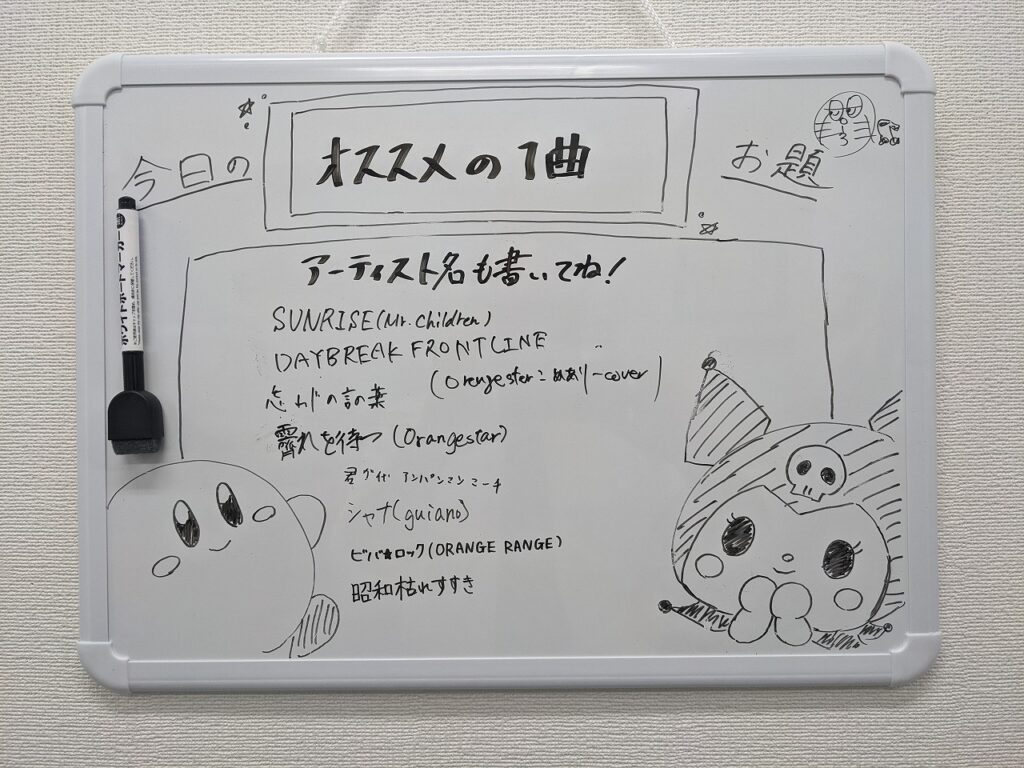 今日の
オススメの1曲
お題
アーティスト名も書いてね!
SUNRISE(Mr. Children)
DAYBREAK FRONTLINE
(Orangestar: ーcover)
の言の葉
霽れを待つ (Orangestar)
アンパンマンマーチ
シャナ(guiano)
ビバ★ロック(ORANGE RANGE)
昭和枯れすすき
ホワイトボードマーカー